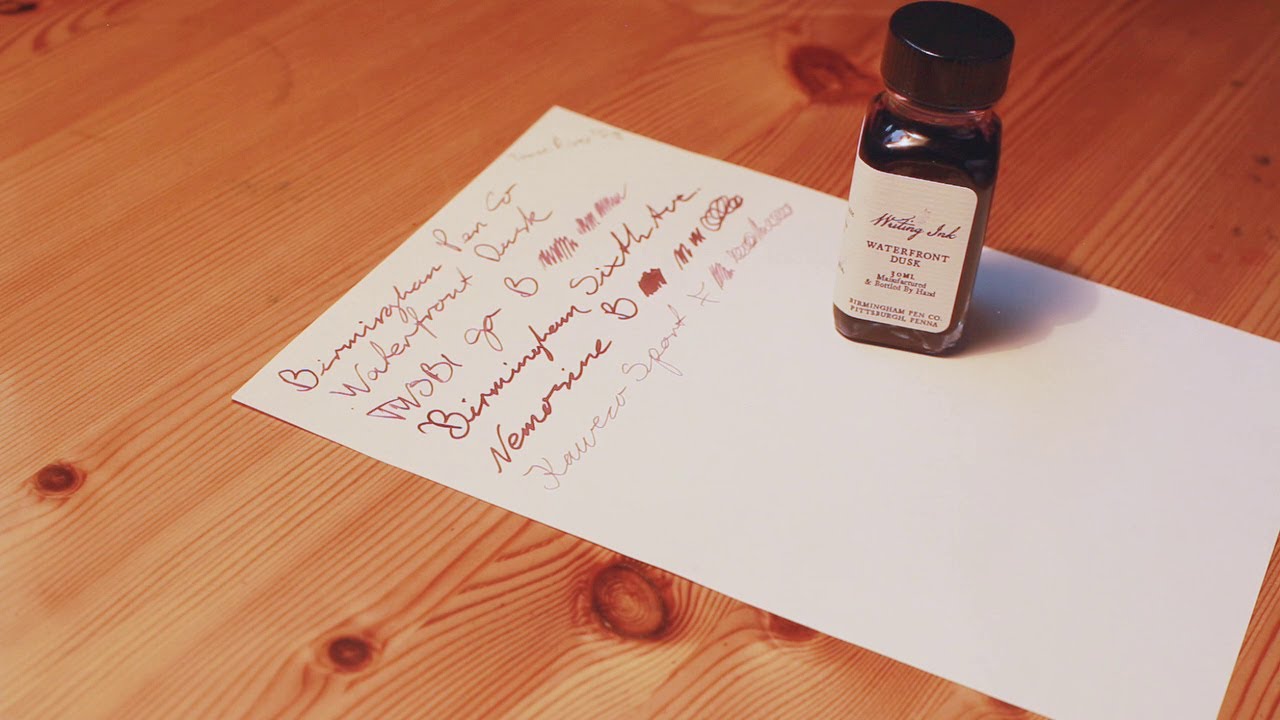 Birmingham Pen Co
Waterfront Dusk
TWSBI go B
Birmingham Sixth Ave.
Nemosine B
Kaweco Sport F
Writing Ink
WATERFRONT
DUSK
30ML
Manufactured
& Bottled By Hand
BIRMINGHAM PEN CO.
PITTSBURGH, PENNA